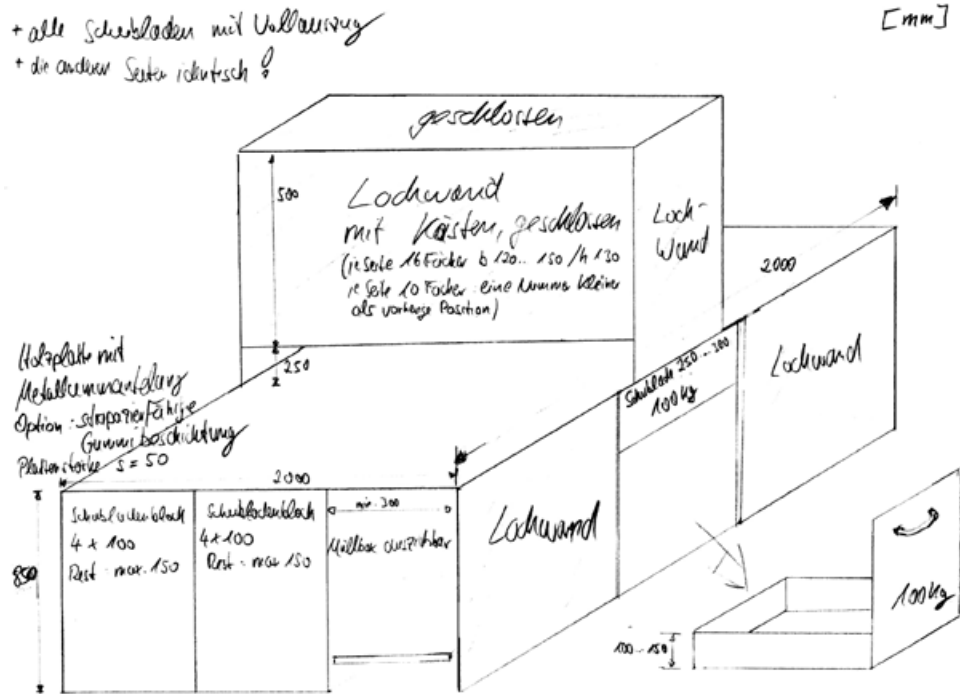 + alle Schubladen mit Vollauszug
+ die anderen Seiten identisch !
[mm]
geschlossen
500
Lochwand
mit Kästen, geschlossen
(je Seite 16 Fächer b 120.. 150 / h 130
je Seite 10 Fächer eine Nummer kleiner
als vorherige Position)
Loch-
Wand
2000
250
Holzplatte mit
Metallummantelung
Option: strapazierfähige
Gummibeschichtung
Plattenstärke s = 50
Schublade 250 ... 300
100kg
Lochwand
2000
850
Schubladenblock
4 x 100
Rest - max. 150
Schubladenblock
4 x 100
Rest - max 150
min. 300
Müllbox ausziehbar
Lochwand
100 - 150
100kg